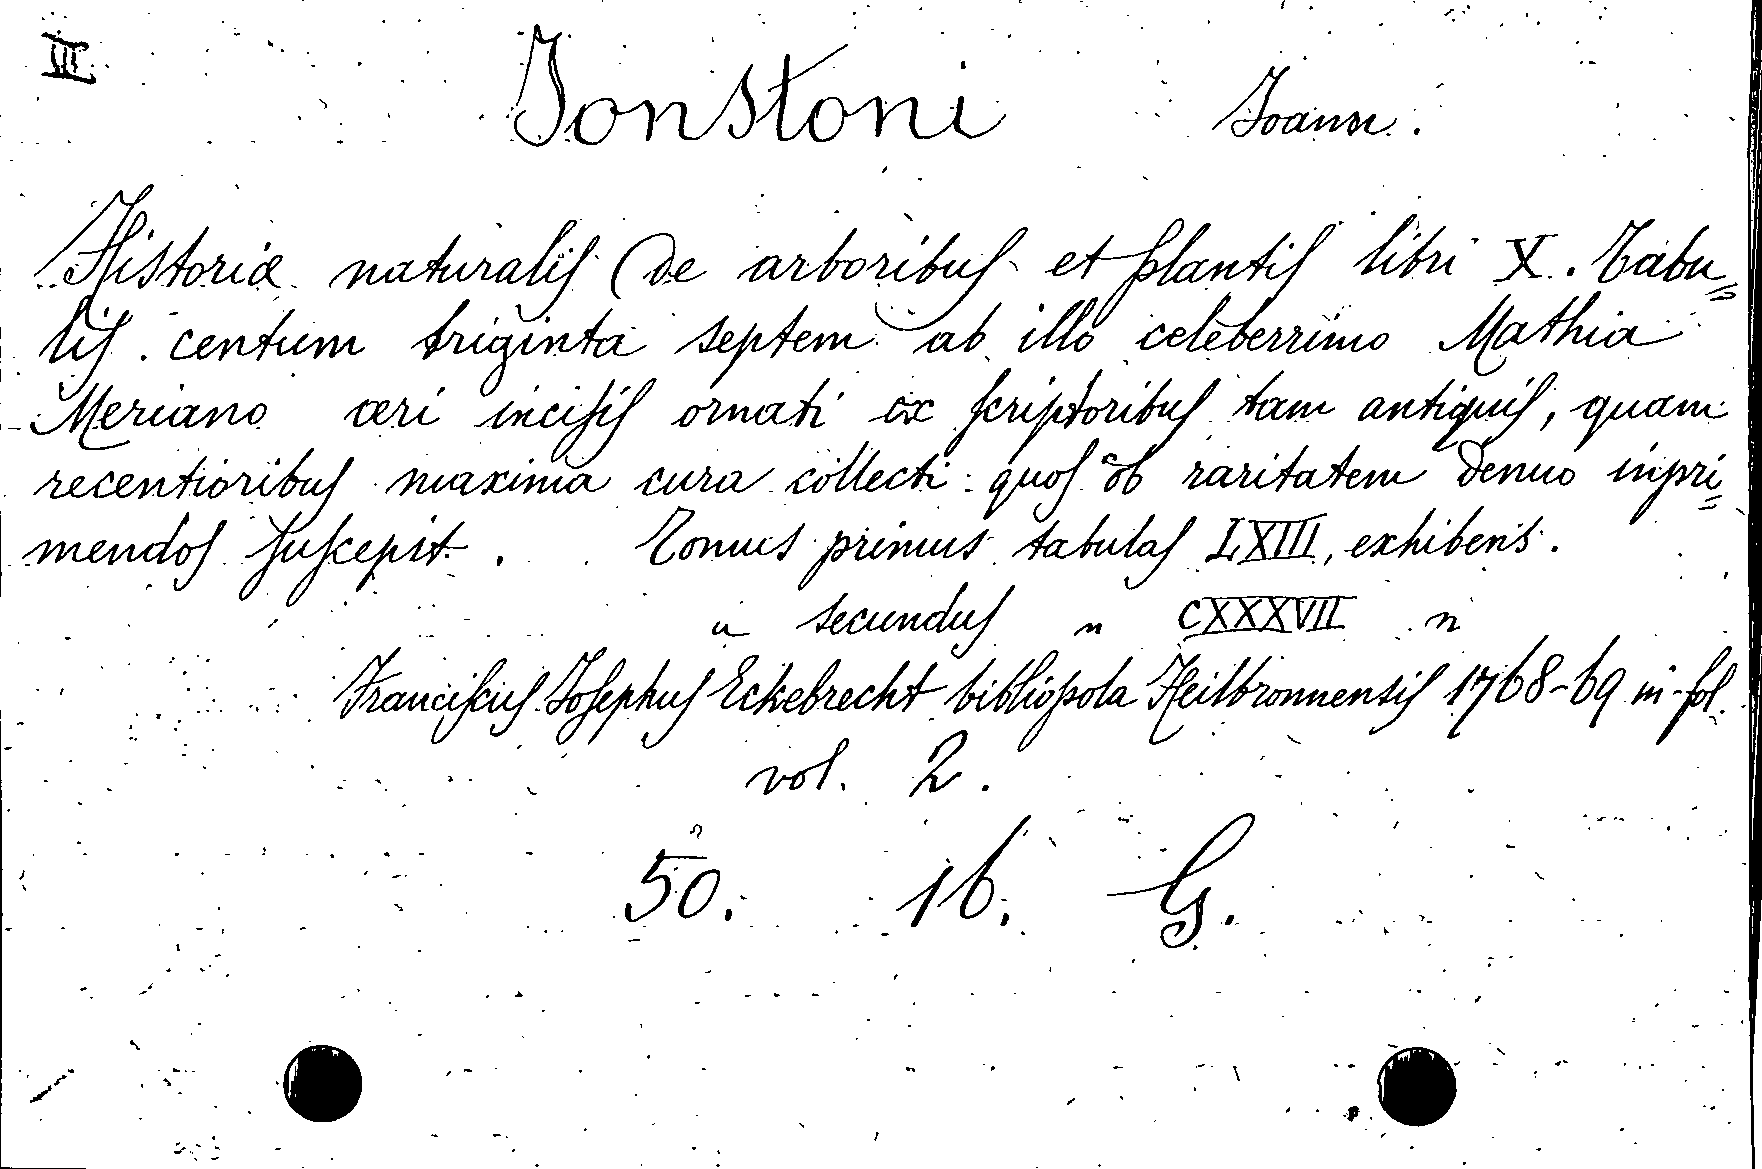 III
Jonstoni Joann.
Historiæ naturalis (de arboribus et plantis libri X. Tabu=
lis centum triginta septem ab illo celeberrimo Mathia
Meriano æri incisis ornati ex scriptoribus tam antiquis, quam
recentioribus maxima cura collecti quos ob raritatem denuo inpri=
mendos suscepit. Tomus primus tabulas LXIII, exhibens.
" secundus " CXXXVII "
Franciscus Josephus Eckebrecht bibliopola Heilbronnensis 1768-69 in-fol.
vol. 2.
50. 16. G.